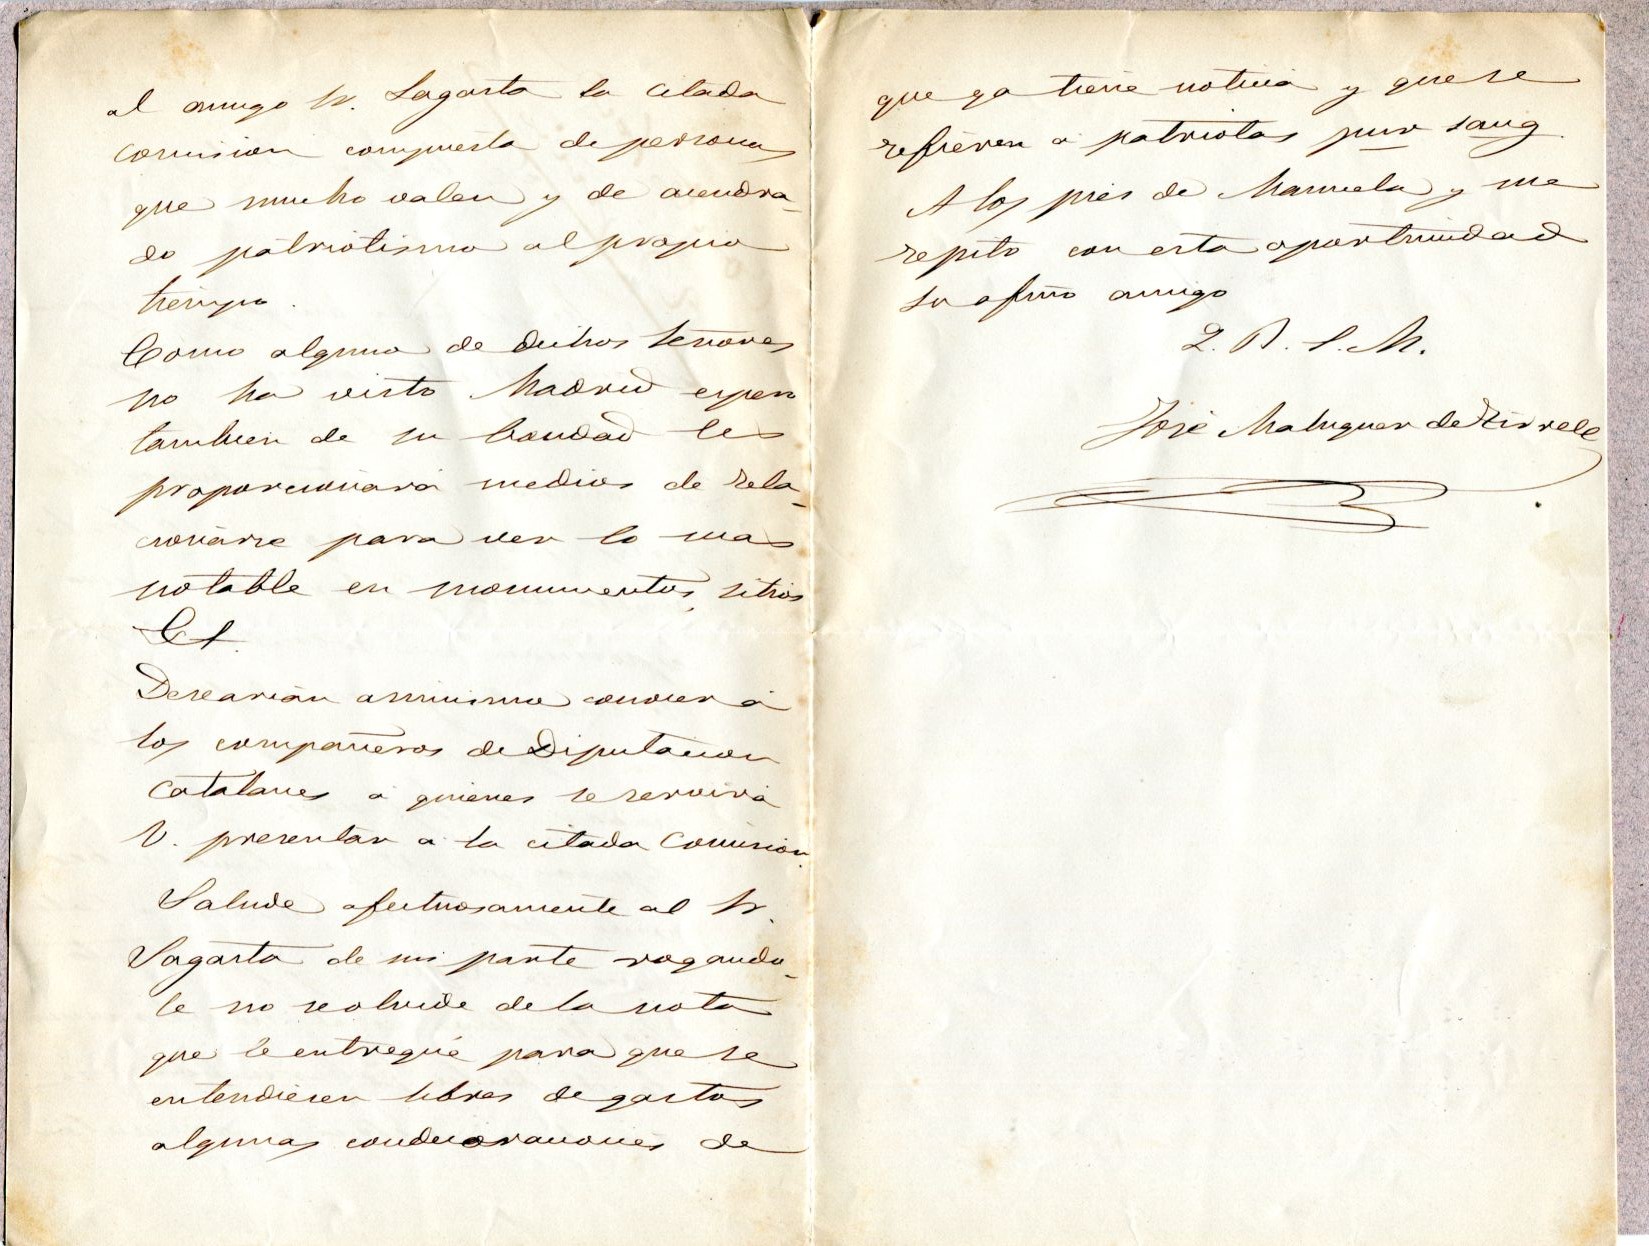 al amigo Sr. Sagasta la citada
comision compuesta de personas
que mucho valen y de acendra-
do patriotismo al propio
tiempo.
Como alguno de dichos Señores
no ha visto Madrid espero
tambien de su bondad les
proporcionará medios de rela-
cionarse para ver lo mas
notable en monumentos, sitios
&.
Desearian asimismo conocer á
los compañeros de Diputacion
Catalanes á quienes se servirá
V. presentar a la citada Comision.
Salude afectuosamente al Sr.
Sagasta de mi parte rogando-
le no se olvide de la nota
que le entregué para que se
entendiesen libres de gastos
algunas condecoraciones de
que ya tiene noticia y que se
refieren á patriotas pur sang.
A los pies de Manuela y me
repito con esta oportunidad
su afmo amigo
Q. B. S. M.
José Maluquer de Tirrell